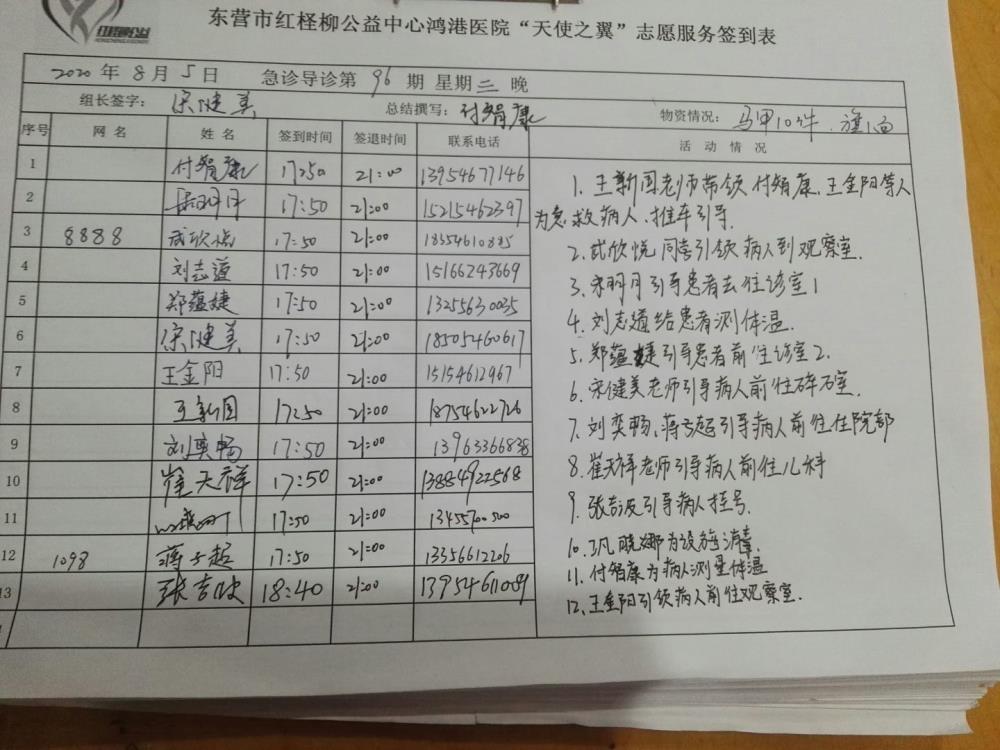 东营市红柽柳公益中心鸿港医院“天使之翼”志愿服务签到表
2020年8月5日 急诊导诊第96期 星期三 晚
组长签字：宋健美 总结撰写：付智康 物资情况：马甲10件.旗1面
序号 网名 姓名 签到时间 签退时间 联系电话 活动情况
1 付智康 17:50 21:00 13954677146
2 17:50 21:00 15215462397
3 8888 武欣悦 17:50 21:00 18354610885
4 刘志道 17:50 21:00 15166243669
5 郑蕴婕 17:50 21:00 13255630035
6 宋健美 17:50 21:00 18505460617
7 王金阳 17:50 21:00 15154612967
8 王新国 17:50 21:00 18754622726
9 刘奕畅 17:50 21:00 13963366838
10 崔天祥 17:50 21:00 13884922568
11 17:50 21:00
12 1098 蒋子起 17:50 21:00 13356612206
13 张吉波 18:40 21:00 13954611089
1. 王新国老师带领付智康.王金阳等人
为急救病人.推车引导.
2. 武欣悦同志引领病人到观察室.
3. 宋明月引导患者去往诊室1
4. 刘志道给患者测体温.
5. 郑蕴婕引导患者前往诊室2.
6. 宋健美老师引导病人前往碎石室.
7. 刘奕畅、蒋子起引导病人前往住院部
8. 崔天祥老师引导病人前往儿科
9. 张吉波引导病人挂号.
10. 巩晓娜为设施消毒.
11. 付智康为病人测量体温
12. 王金阳引领病人前往观察室.